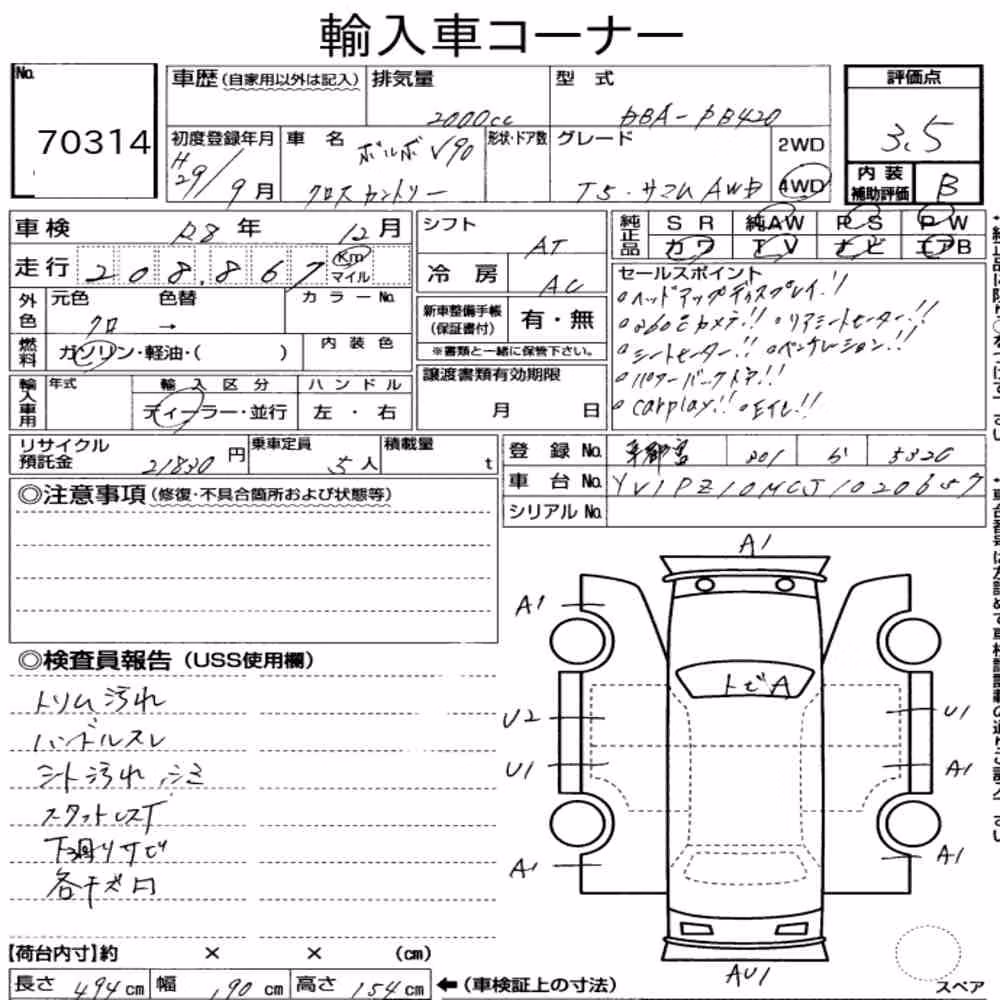 輸入車コーナー
No.
70314
車歴(自家用以外は記入)
排気量
2000cc
型式
DBA-PB420
評価点
3.5
初度登録年月
H29/9月
車名
ボルボ V90
クロスカントリー
形状・ドア数
グレード
T5・サマムAWD
2WD
4WD
内装補助評価
B
車検 R8年 12月
走行 208,867 Km マイル
シフト
AT
冷房
AC
純正品
SR 純AW PS PW
カワ TV ナビ エアB
セールスポイント
ヘッドアップディスプレイ!!
360°カメラ!! リアシートヒーター!!
シートヒーター!! ベンチレーション!!
パワーバックドア!!
Carplay!! 毛イレ!!
外色
元色 色替
クロ →
カラーNo.
燃料
ガソリン・軽油・( )
内装色
新車整備手帳(保証書付)
有・無
※書類と一緒に保管下さい。
輸入車用
年式
輸入区分
ディーラー・並行
ハンドル
左・右
譲渡書類有効期限
月 日
リサイクル預託金
21830円
乗車定員
5人
積載量
t
登録No. 宇都宮 301 5320
車台No. YV1PZ10MCJ1020657
シリアルNo.
◎注意事項(修復・不具合箇所および状態等)
◎検査員報告(USS使用欄)
トリム汚れ
ハンドルスレ
シート汚れ、シミ
スタットレスT
下廻りサビ
各キズ凹
A1
A1
トビA
U2
U1
U1
A1
A1
A1
AU1
スペア
【荷台内寸】約 × × (cm)
長さ 494cm 幅 190cm 高さ 154cm ←(車検証上の寸法)